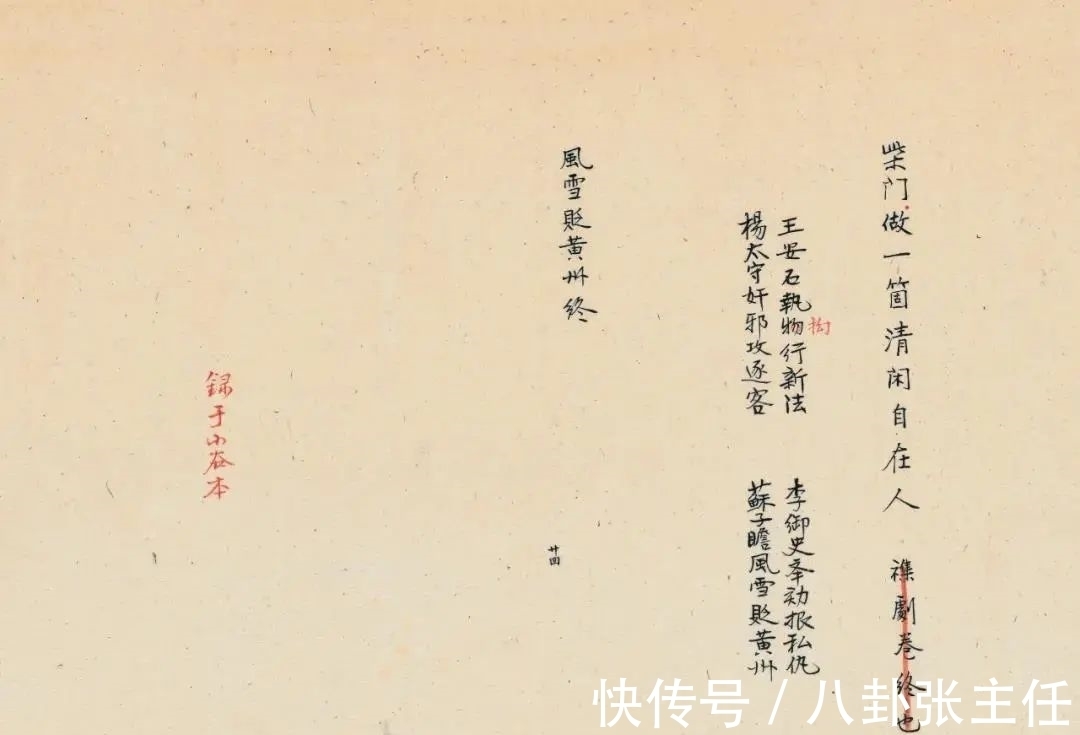 柴门做一箇清闲自在人 襍劇卷終也
王安石執物行新法 李御史举劾报私仇
拗
楊太守奸邪攻逐客 蘇子瞻風雪貶黄州
風雪貶黄州終
廿四
録于小谷本
快传号/八卦张主任